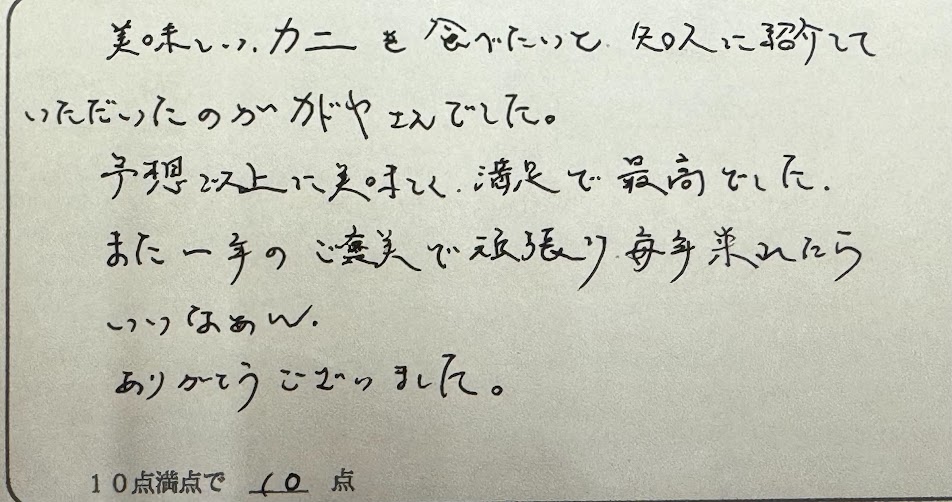 美味しい、カニを食べたいと、知人に紹介して
いただいたのがかどやさんでした。
予想以上に美味しく、満足で最高でした。
また一年のご褒美で頑張り、毎年来れたら
いいなぁ〜。
ありがとうございました。
10点満点で 10 点